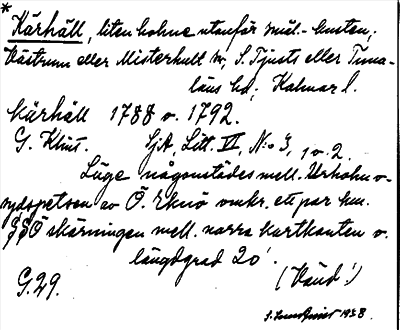 * Kärhäll, liten holme utanför smål.-kusten;
Västrum eller Misterhult sn, S. Tjusts eller Tuna-
läns hd; Kalmar l.
Kärhäll 1788 o. 1792.
G. Klint. SjA, Litt. VI, N:o 3, 1 o. 2.
Läge någonstädes mell. Urholm o.
sydspetsen av Ö. Eknö omkr. ett par km.
SSÖ skärningen mell. norra kartkanten o.
längdgrad 20'.
(Vänd!)
G.29.
S. Lundqvist 1938.